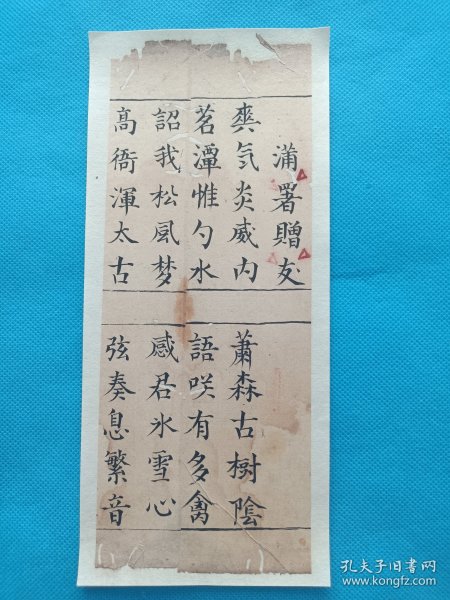 蒲署贈友
爽气炎威内 蕭森古樹陰
茗潭惟勺水 語咲有多禽
詔我松風梦 感君氷雪心
高衙渾太古 弦奏息繁音
孔夫子旧书网
www.kongfz.com